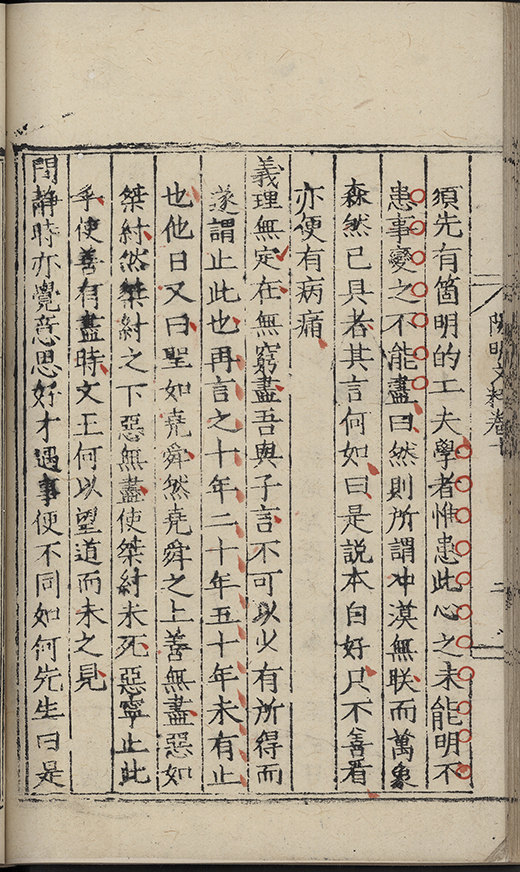 須先有箇明的工夫學者惟患此心之未能明不
患事變之不能盡曰然則所謂冲漠無朕而萬象
森然已具者其言何如曰是説本自好只不善看
亦便有病痛
義理無定在無窮盡吾與子言不可以少有所得而
遂謂止此也再言之十年二十年五十年未有止
也他日又曰聖如堯舜然堯舜之上善無盡惡如
桀紂然桀紂之下惡無盡使桀紂未死惡寧止此
乎使善有盡時文王何以望道而未之見
問靜時亦覺意思好才遇事便不同如何先生曰是
陽明文粹卷十
二